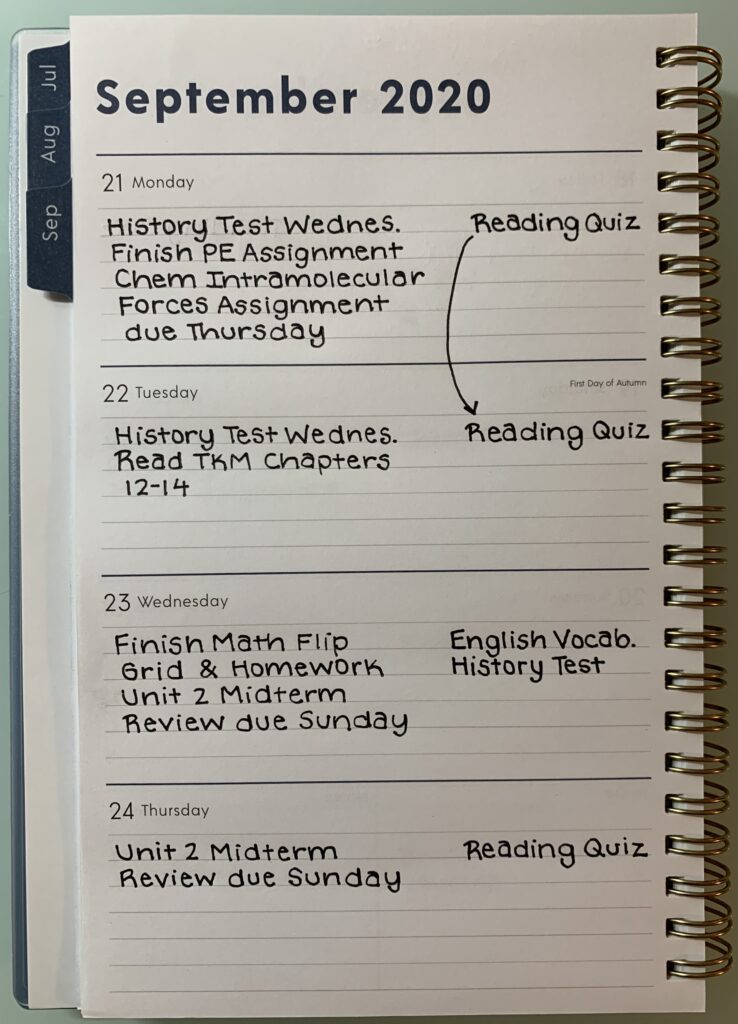 Jul
Aug
Sep
September 2020
21 Monday
History Test Wednes.
Finish PE Assignment
Chem Intramolecular
Forces Assignment
due Thursday
Reading Quiz
22 Tuesday
First Day of Autumn
History Test Wednes.
Read TKM Chapters
12-14
Reading Quiz
23 Wednesday
Finish Math Flip
Grid & Homework
Unit 2 Midterm
Review due Sunday
English Vocab.
History Test
24 Thursday
Unit 2 Midterm
Review due Sunday
Reading Quiz